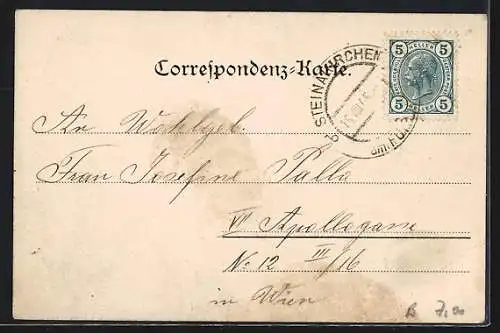 Correspondenz-Karte.
STEINAKIRCHEN
am FORST
5 HELLER 5
5 HELLER 5
An Wohlgeb.
Frau Josefine Palla
VI Apollogasse
No 12 III/16
in Wien
B 7,00